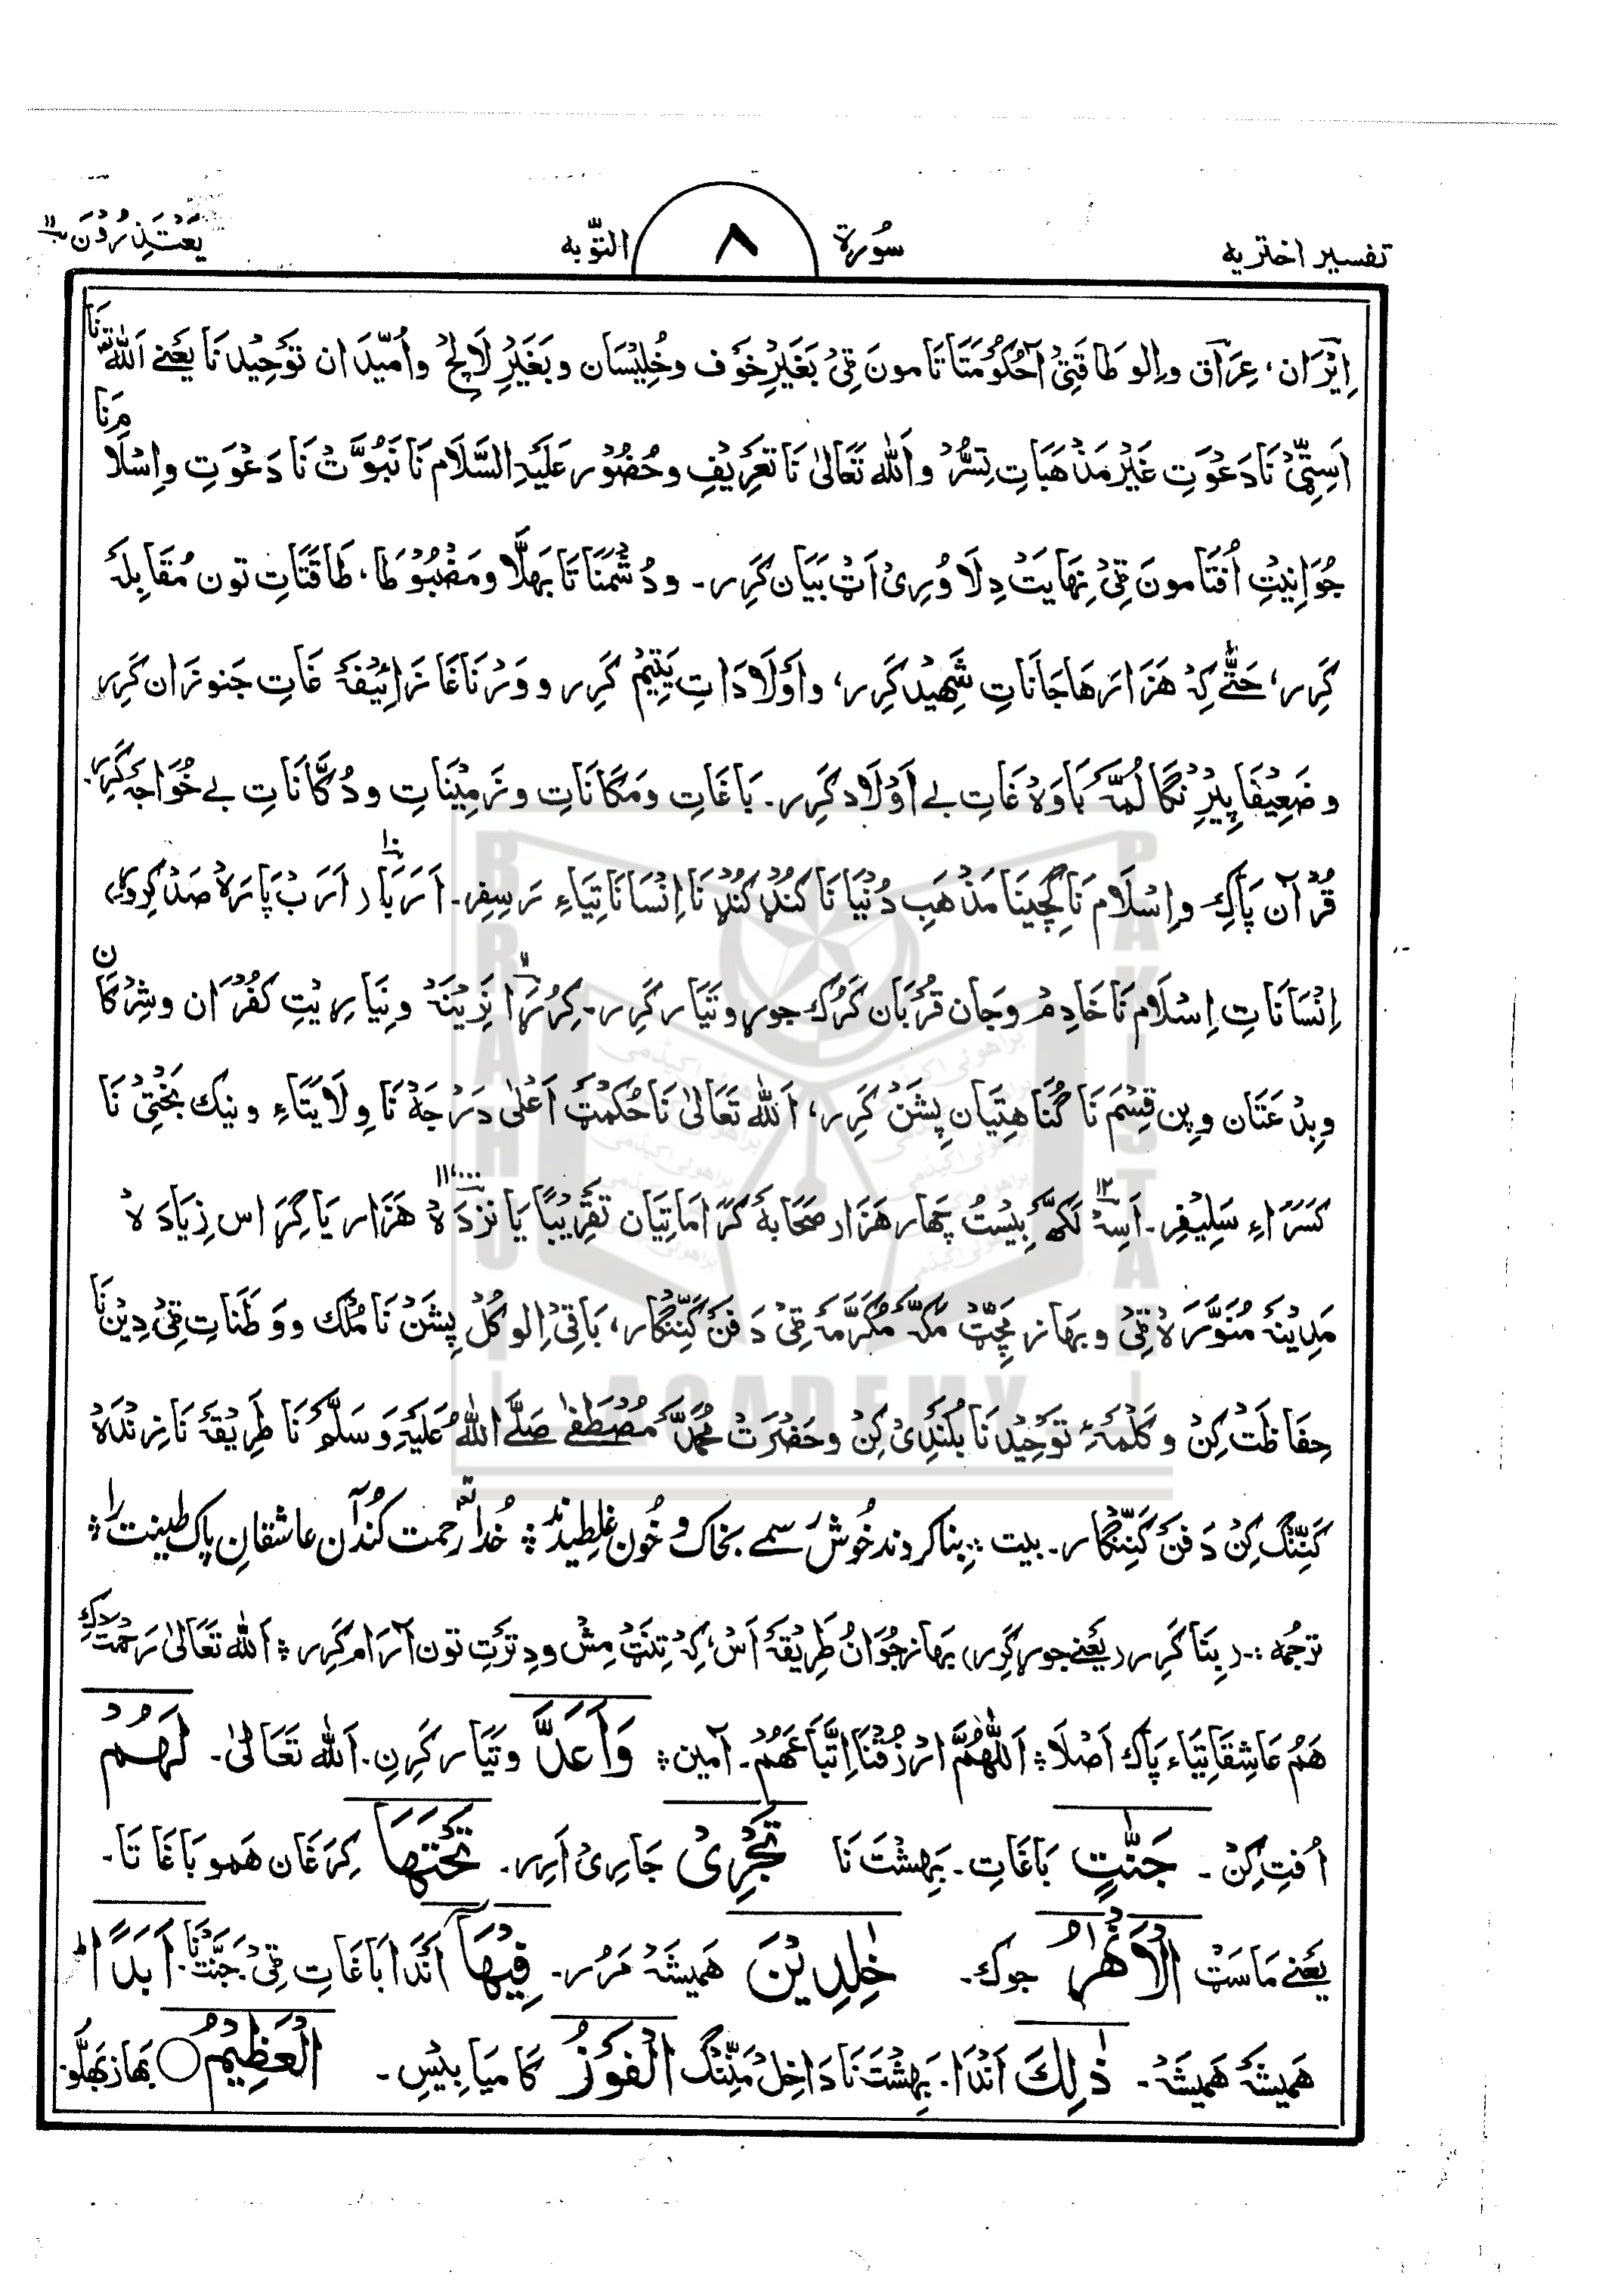 تفسیر اختریه سُورة ٨ التّوبه یَعْتَذِرُوْنَ ١١
اِیْرَان، عِرَاق واِلو طَاقَتِیْ آحُکُوْمَتَاتَا مون قِیْ بَغَیرِ خَوف وخُلِیْسَان وبَغَیرِ لَالِچْ واُمّیْدَ ان تَوحِیْد نَا یَعْنے اَللّٰه تَ نَا
اَسِتِّیْ نَا دَعْوَتِ غَیْرمَذْهَبَاتِ تِسُّرْ واَللّٰه تَعَالیٰ نَا تَعْرِیْفِ وحُضُوْر عَلَیْهِ السَّلَام نَا نَبُوَّتْ نَا دَعْوَتِ واِسْلَامَ نَا
جُوَانِیتِ اُفْتَا مونَ قِیْ نِهَایَتْ دِلَاوُرِیْ اَتْ بَیَان کَرِر۔ ودُشْمَنَاتَا بَهلَّا ومَضْبُوْطَا، طَاقَتَاتِ تون مُقَابِلَهْ
کَرِر، حَتّٰے کِهْ هَزَارهَا جَانَاتِ شَهِیْد کَرِر، واَوْلَادَاتِ یَتِیْم کَرِر و وَرْنَاغَا زَائِیْفَهْ غَاتِ جَنوزَان کَرِر
وضَعِیْفَا پِیْرِنْگَا لُمَّهْ بَاوَهْ غَاتِ بے اَوْلَاد کَرِر۔ بَاغَاتِ ومَکَانَاتِ وزَمِیْنَاتِ ودُکَّانَاتِ بے خُوَاجَهْ کَرِر.
قُرْآن پَاک واِسْلَام نَا گِچِیْنَا مَذْهَبِ دُنْیَا نَا کُنْڈ کُنْڈ نَا اِنْسَانَاتِیَاءِ رَسِفِر۔ اَرَبَا ١٠ (اَرَبْ پَارَهْ صَدْ کِروڑ)
اِنْسَانَاتِ اِسْلَام نَا خَادِمْ وجَان قُرْبَان کَرُک جوڑ وتَیَار کَرِر۔ کِرُڑَا ١١ نِرِیْنَهْ ونِیَارِیْتِ کُفْرَان وشِرْکَان
وبِدْعَتَان وپِن قِسْمَ نَا گُنَاهتِیَان پِشَنْ کَرِر، اَللّٰه تَعَالیٰ نَا حُکْمَتْ اَعْلیٰ دَرْجَهْ نَا وِلَایَتَاءِ ونیک بَخْتِیْ نَا
کَسَرَاءِ سَلِیْفِر۔ اَسِهْ ١٢ لَکھ بِیْسْت چَهار هَزَار صَحَابَهْ کَرَامَاتِیَان تَقْرِیْبًا یَانزدَهْ ١١،٠٠٠ هَزَار یَا گِرَاس زِیَادَهْ
مَدِیْنَهْ مُنَوَّرَهْ قِیْ وبهَاز مَچِّٹْ مَکَّهْ مُکَرَّمَهْ قِیْ دَفَنْ کَنِنْگَار، بَاقِیْ اِلو کُلْ پِشَنْ نَا مُلْک و وَطَنَاتِ قِیْ دِیْنَ نَا
حِفَاظَتْ کِنْ وکَلْمَهْءِ تَوحِیْد نَا بُلَنْدِیْ کِنْ وحَضْرَتْ مُحَمَّدْ مُصْطَفٰے صَلَّے اللّٰهُ عَلَیْهِ وَسَلَّم نَا طَرِیْقَهْ نَا زِنْدَهْ
کَنِنْگ کِنْ دَفَنْ کَنِنْگَار۔ بیت ؞ بنا کردند خُوش رَسمے بخاک و خُون غلطیدند ؞ خُدا رحمت کُند آن عاشقانِ پاک طینت را ؞
ترجُمه :۔ (بِنَا کَرِر (یَعْنے جوڑ کَرِر) بهَاز جُوَانُ طَرِیْقَهْ اَسْ، کِهْ تِنَتْ مِشْ ودِتَرْتِ تون آرَام کَرِر ؞ اَللّٰه تَعَالیٰ رَحْمَتْ کے
هَمُ عَاشِقَاتِیَاءِ پَاک اَصْلَا ؞ اَللّٰهُمَّ ارْزُقْنَا اِتِّبَاعَهُمْ۔ آمین ؞ وَاَعَدَّ وتَیَار کَرِنِ۔ اَللّٰه تَعَالیٰ۔ لَهُمْ
اُفتِ کِنْ ۔ جَنّٰتٍ بَاغَاتِ۔ بَهِشْتَ نَا تَجْرِیْ جَارِیْ اَرِر۔ تَحْتَهَا کِرَغَان هَمو بَاغَاتَا۔
یَعْنے مَاسَتْ الْاَنْهٰرُ جوک۔ خٰلِدِیْنَ هَمِیْشَهْ مَرُر۔ فِیْهَآ اَنْدَا بَاغَاتِ قِیْ۔ جَنَّتْ نَا. اَبَدًا
هَمِیْشَهْ هَمِیْشَهْ۔ ذٰلِکَ اَنْدَا۔ بَهِشْتَ نَا دَاخِلْ مَنِنْگ الْفَوْزُ کَامیَابِیْسِ۔ الْعَظِیْمُ بهَاز بهَلُّو.
BRAHUI ACADEMY PAKISTAN